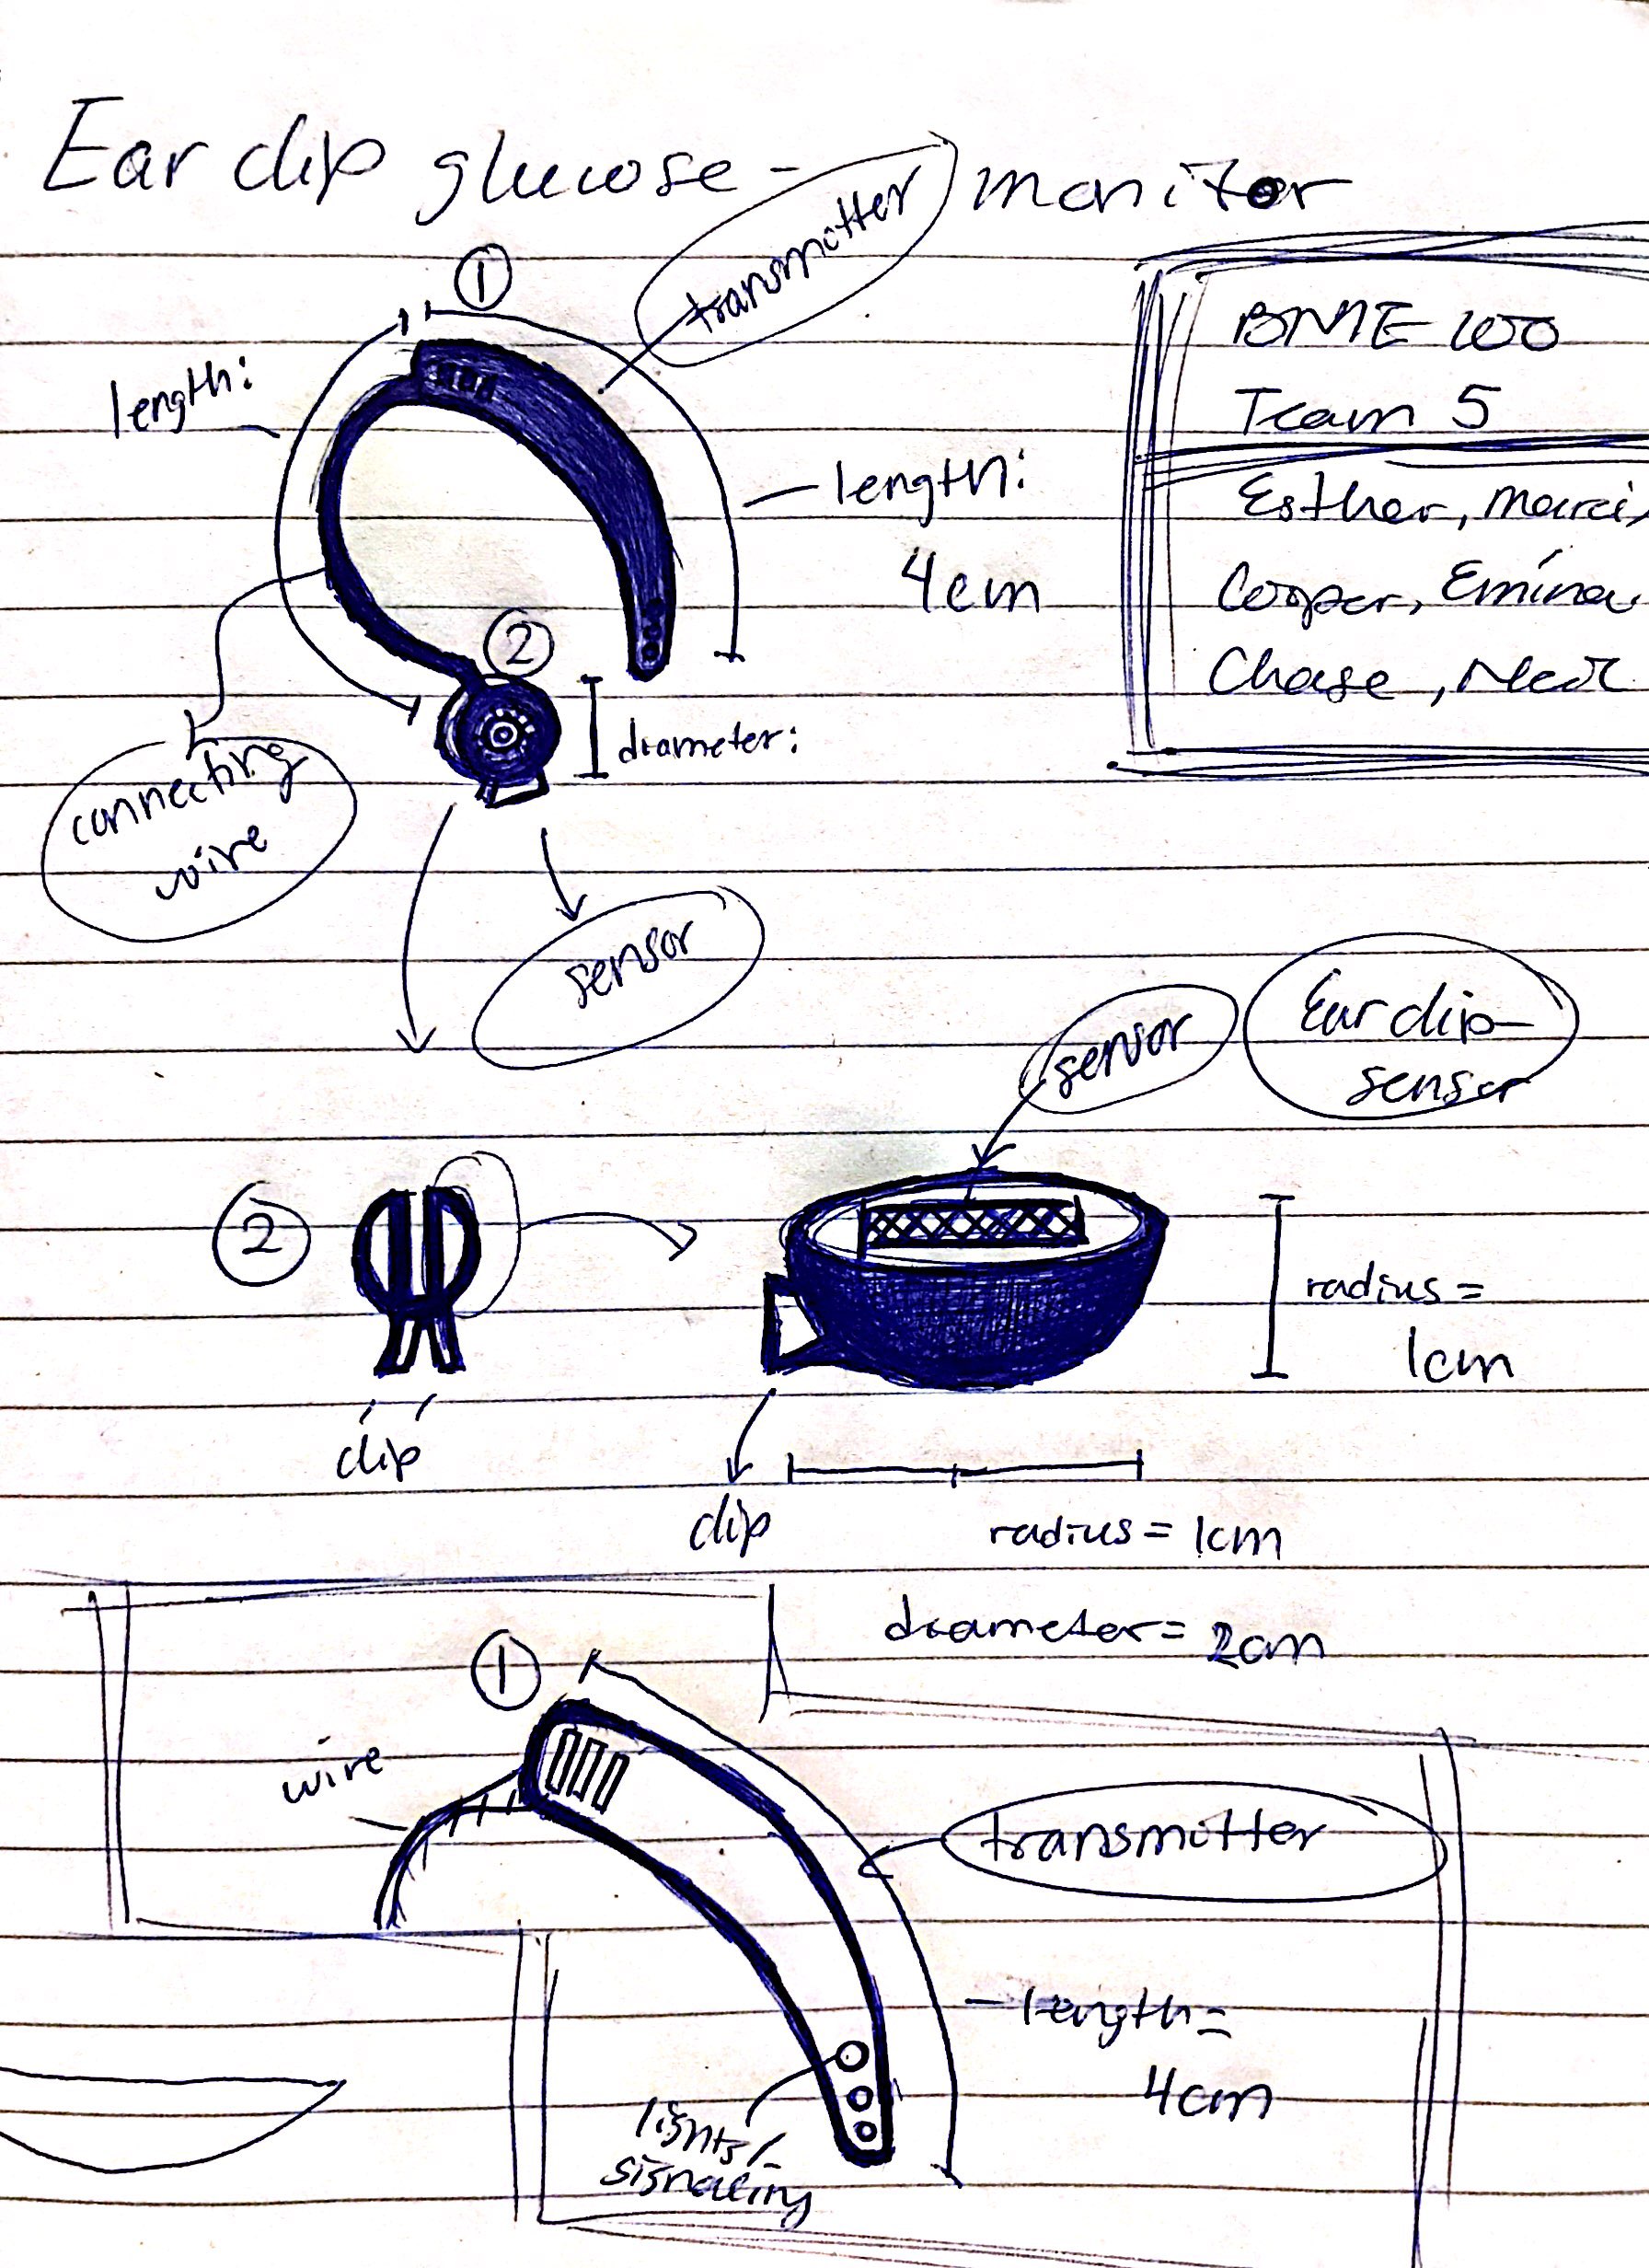 Ear clip glucose-monitor
①
transmitter
length:
BME 100
Team 5
length:
4cm
Esther,
Cooper,
Chase,
②
diameter:
connecting
wire
sensor
sensor
Ear clip
sensor
②
radius =
1cm
clip
clip
radius = 1cm
diameter = 2cm
①
wire
transmitter
length =
4cm
lights/
signaling